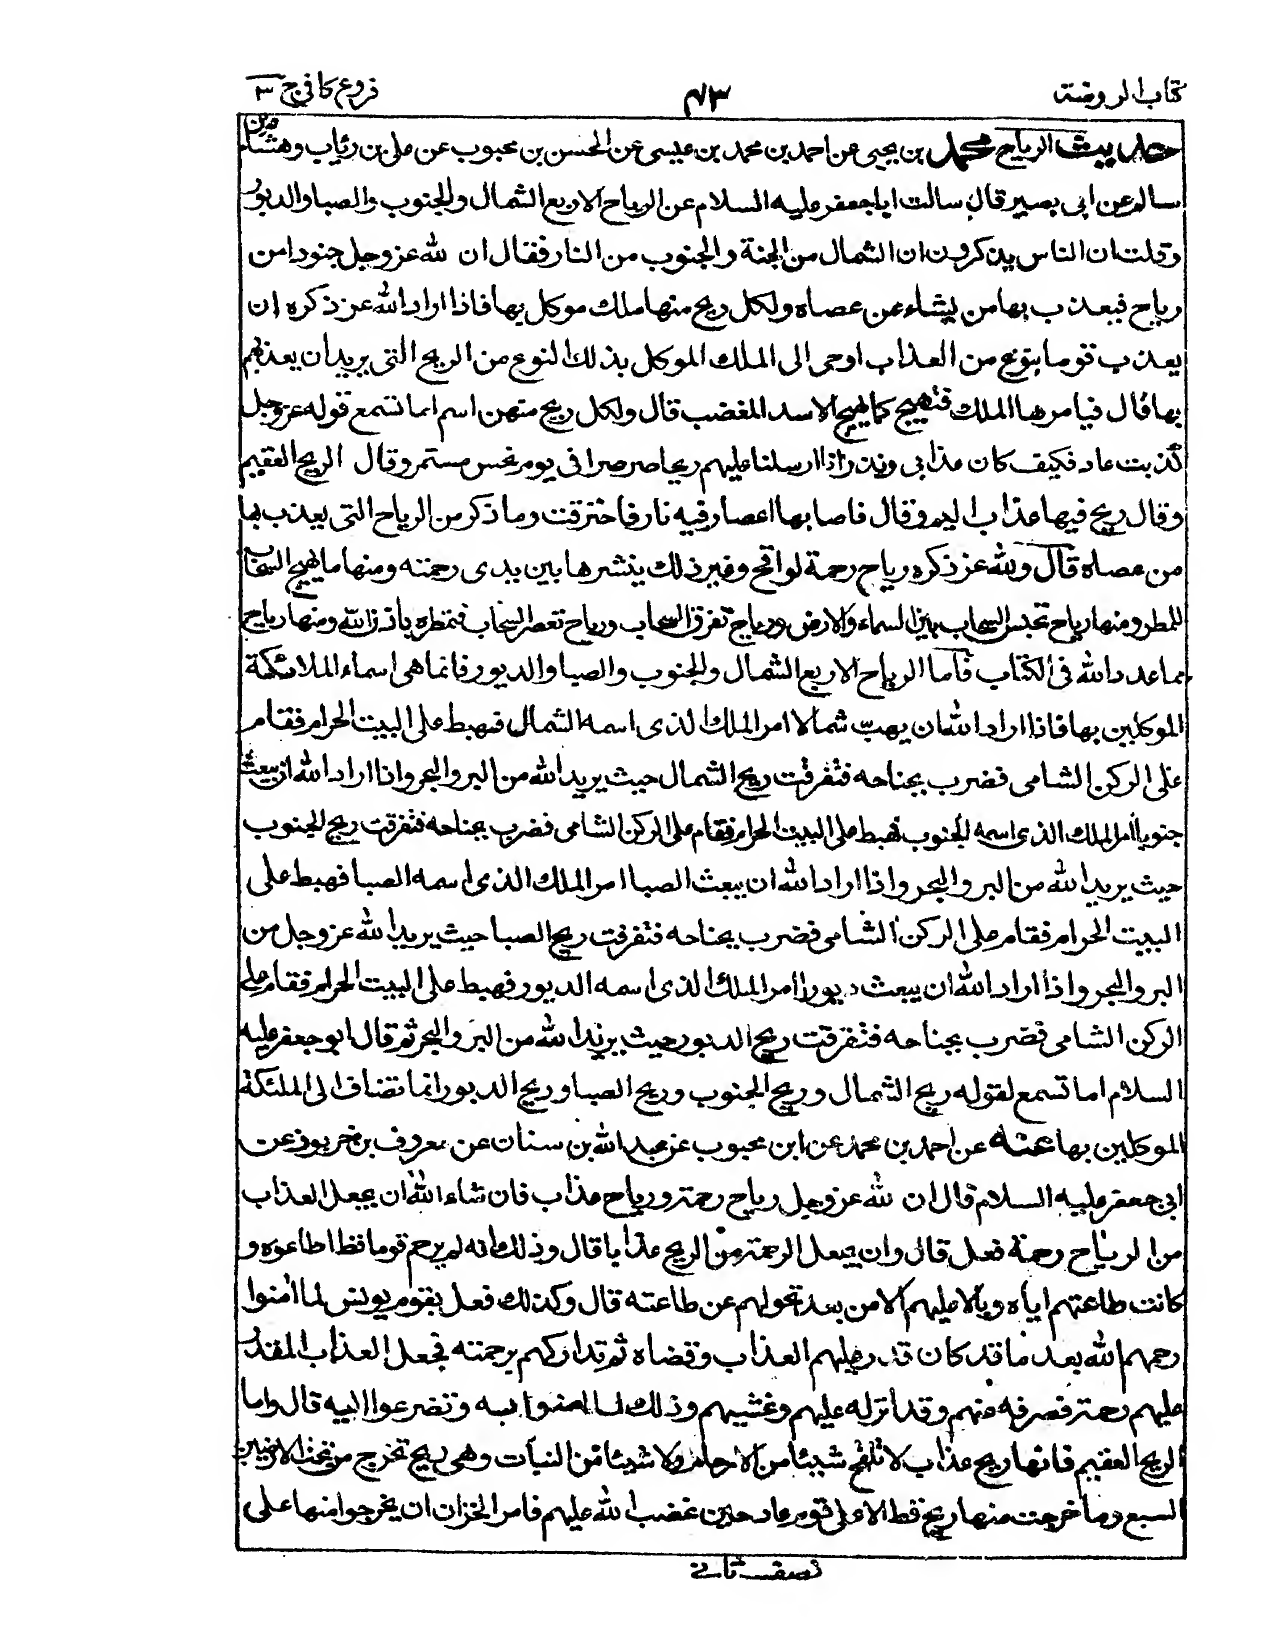 كتاب الروضة
٤٣
فروع كافي ج ٣
حديث الرياح محمد بن يحيى عن احمد بن محمد بن عيسى عن الحسن بن محبوب عن على بن رئاب وهشام بن
سالم عن ابى بصير قال سالت ابا جعفر عليه السلام عن الرياح الاربع الشمال والجنوب والصبا والدبور
وقلت ان الناس يذكرون ان الشمال من الجنة والجنوب من النار فقال ان لله عز وجل جنودا من
رياح فيعذب بها من يشاء ممن عصاه ولكل ريح منها ملك موكل بها فاذا اراد الله عز ذكره ان
يعذب قوما بنوع من العذاب اوحى الى الملك الموكل بذلك النوع من الريح التى يريد ان يعذبهم
بها قال فيامرها الملك فتهيج كما يهيج الاسد المغضب قال ولكل ريح منهن اسم اما تسمع قوله عز وجل
كذبت عاد فكيف كان عذابى ونذر انا ارسلنا عليهم ريحا صرصرا فى يوم نحس مستمر وقال الريح العقيم
وقال ريح فيها عذاب اليم وقال فاصابها اعصار فيه نار فاحترقت وما ذكر من الرياح التى يعذب بها
من عصاه قال ولله عز ذكره رياح رحمة لواقح وغير ذلك ينشرها بين يدى رحمته ومنها ما يهيج السحاب
للمطر ومنها رياح تحبس السحاب بين السماء والارض ورياح تفرق السحاب ورياح تعصر السحاب فتمطره باذن الله ومنها رياح
مما عدد الله فى الكتاب فاما الرياح الاربع الشمال والجنوب والصبا والدبور فانما هى اسماء الملائكة
الموكلين بها فاذا اراد الله ان يهب شمالا امر الملك الذى اسمه الشمال فيهبط على البيت الحرام فقام
على الركن الشامى فضرب بجناحه فتفرقت ريح الشمال حيث يريد الله من البر والبحر واذا اراد الله ان يبعث
جنوبا امر الملك الذى اسمه الجنوب فهبط على البيت الحرام فقام على الركن الشامى فضرب بجناحه فتفرقت ريح الجنوب
حيث يريد الله من البر والبحر واذا اراد الله ان يبعث الصبا امر الملك الذى اسمه الصبا فهبط على
البيت الحرام فقام على الركن الشامى فضرب بجناحه فتفرقت ريح الصبا حيث يريد الله عز وجل من
البر والبحر واذا اراد الله ان يبعث دبورا امر الملك الذى اسمه الدبور فهبط على البيت الحرام فقام على
الركن الشامى فضرب بجناحه فتفرقت ريح الدبور حيث يريد الله من البر والبحر ثم قال ابو جعفر عليه
السلام اما تسمع لقوله ريح الشمال وريح الجنوب وريح الصبا وريح الدبور انما تضاف الى الملئكة
الموكلين بها عنه عن احمد بن محمد عن ابن محبوب عن عبد الله بن سنان عن معروف بن خربوذ عن
ابى جعفر عليه السلام قال ان لله عز وجل رياح رحمة ورياح عذاب فان شاء الله ان يجعل العذاب
من الرياح رحمة فعل قال ولن يجعل الرحمة من الريح عذابا قال وذلك انه لم يرحم قوما قط اطاعوه و
كانت طاعتهم اياه وبالا عليهم الا من بعد تحولهم عن طاعته قال وكذلك فعل بقوم يونس لما امنوا
رحمهم الله بعد ما قد كان قدر عليهم العذاب وقضاه ثم تداركهم برحمته فجعل العذاب المقدر
عليهم رحمة فصرفه عنهم وقد انزله عليهم وغشيهم وذلك لما امنوا به وتضرعوا اليه قال واما
الريح العقيم فانها ريح عذاب لا تلقح شيئا من الارحام ولا شيئا من النبات وهى ريح تخرج من تحت الارضين
السبع وما خرجت منها ريح قط الا على قوم عاد حين غضب الله عليهم فامر الخزان ان يخرجوا منها على
نصف ثانى